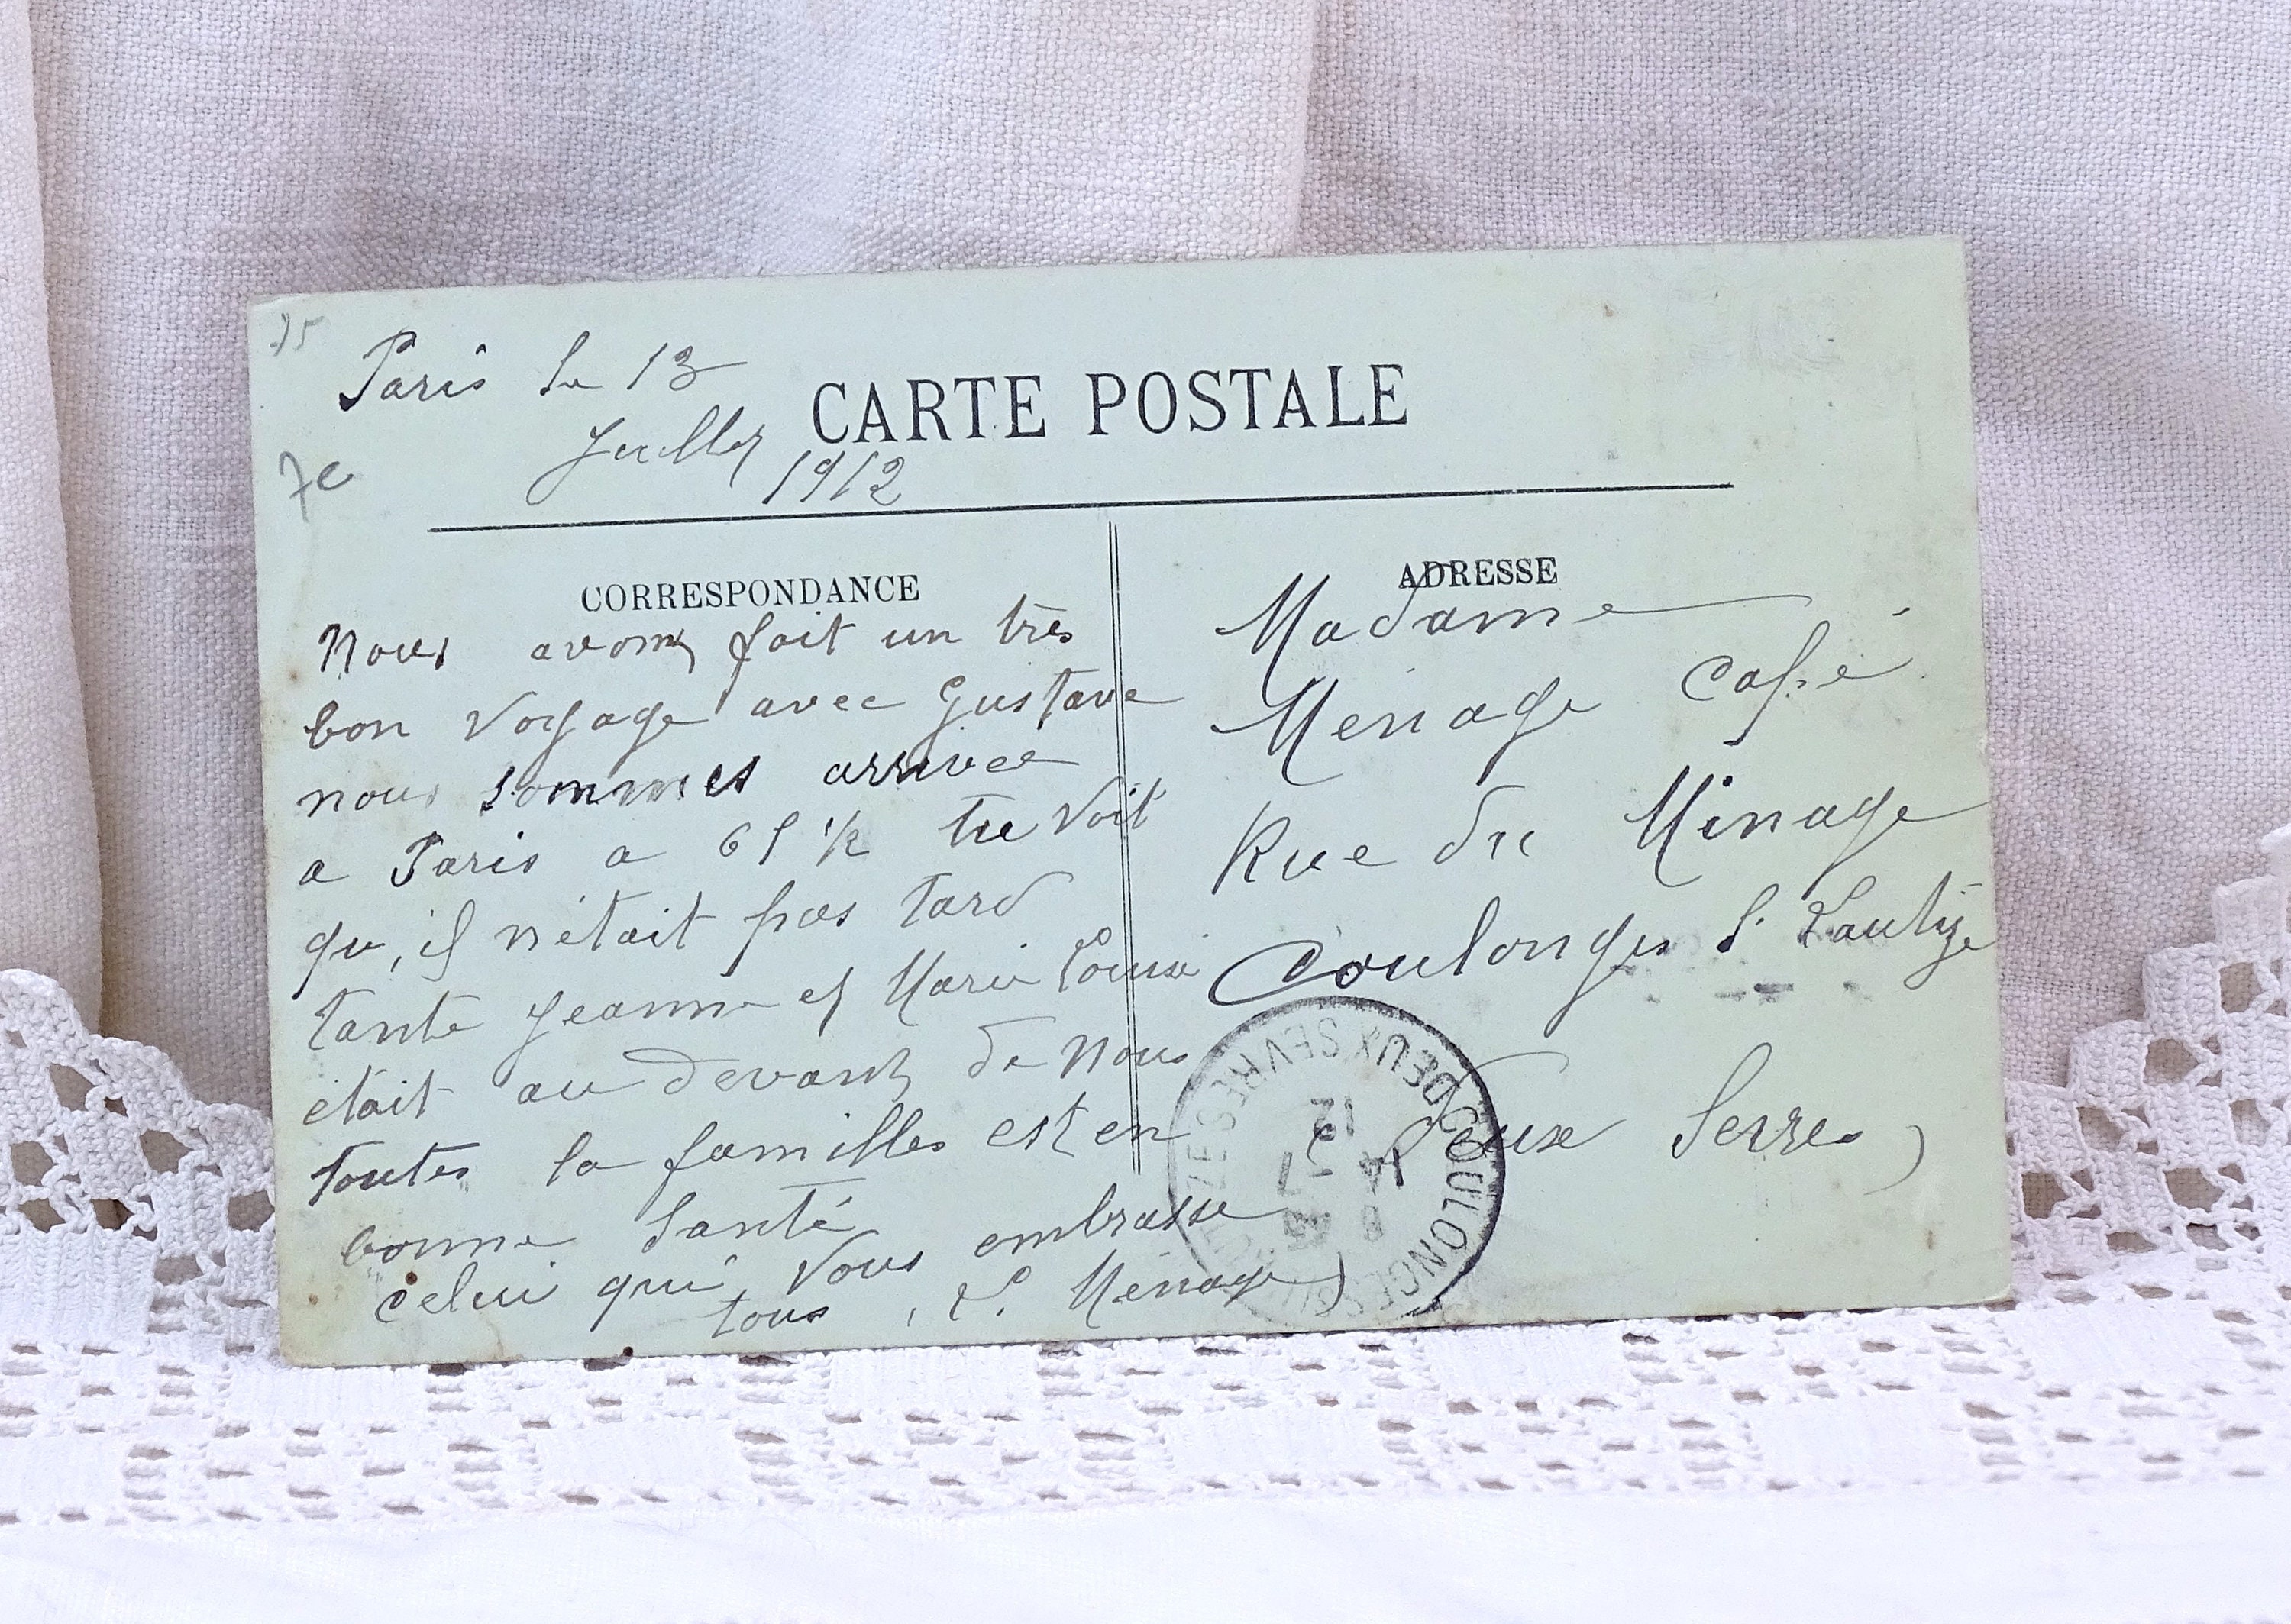 75
Paris le 13
Juillet
1912
7e
CARTE POSTALE
CORRESPONDANCE
Nous avons fait un très
bon voyage avec Gustave
nous sommes arrivee
a Paris a 6h 1/2 tu voit
qu,il n'etait pas tard
tante Jeanne et Marie Louise
était au devant de nous
toutes la familles est en
bonne santé
celui qui vous embrasse
tous, L. Ménage
ADRESSE
Madame
Menage café
Rue du Minage
Coulonges S. Lautize
Deux Sevres
COULONGES DEUX SEVRES
12
14 - 7
8